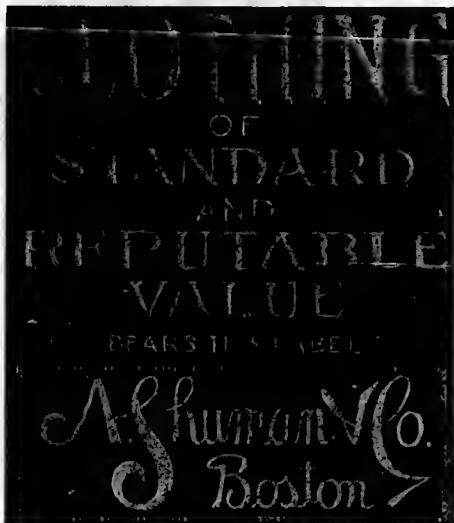 CLOTHING
OF
STANDARD
AND
REPUTABLE
VALUE
BEARS THIS LABEL
A. Shuman & Co.
Boston